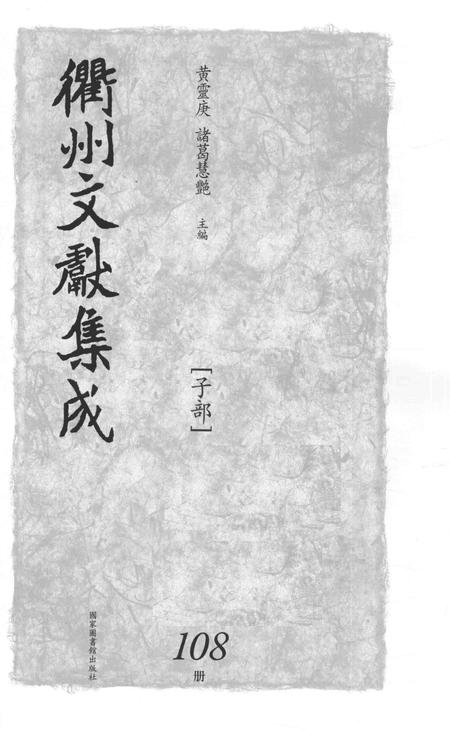 黃靈庚 諸葛慧艷 主編
衢州文獻集成
[子部]
108
册
國家圖書館出版社